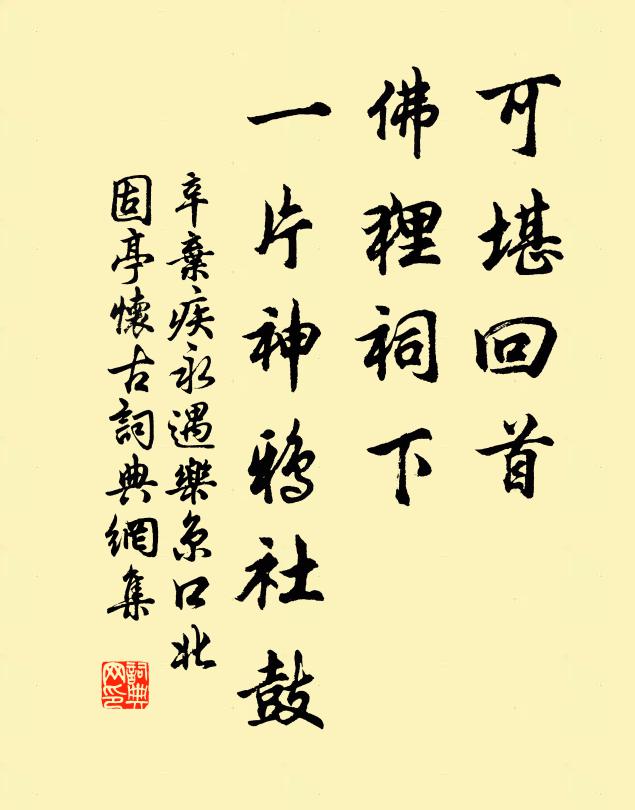 可堪回首
佛狸祠下
一片神鸦社鼓
辛棄疾永遇樂京口北
固亭懷古詞典網集
詞典
网印